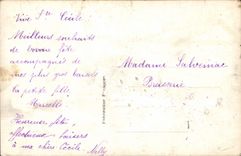 Vive Ste Cécile !
Meilleurs souhaits
de bonne fête
accompagnés de
mes plus gros baisers
la petite fille
Marcelle
Heureuse fête,
affectueux baisers
à ma chère Cécile. Nelly
Madame